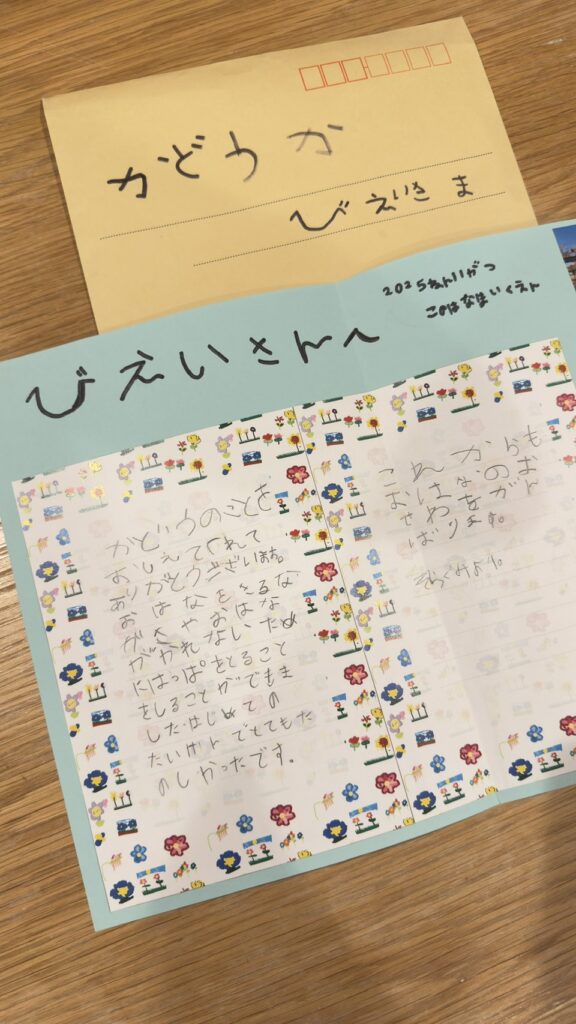 かどうか
びえいさま
2025ねん11がつ
このはなほいくえん
びえいさんへ
かどうのことを
おしえてくれて
ありがとうございます。
おはなをきるな
がさやおはな
がかれないため
にはっぱをとること
をしることができま
した。はじめての
たいけんでとてもた
のしかったです。
これからも
おはなのお
せわをがん
ばります。
より。